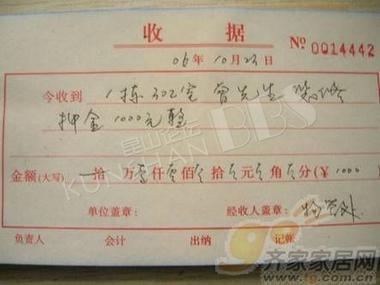 收 据
06 年 10 月 23 日 No 0014442
今收到 1栋302室 曾先生 装修
押金 1000元整
金额(大写) 拾 万 壹 仟 零 佰 零 拾 零 元 零 角 零 分 (¥ 1000 )
单位盖章: 经收人盖章:
负责人 会计 出纳 记帐
昆山论坛
KUNSHAN BBS
齐家家居网
www.tg.com.cn